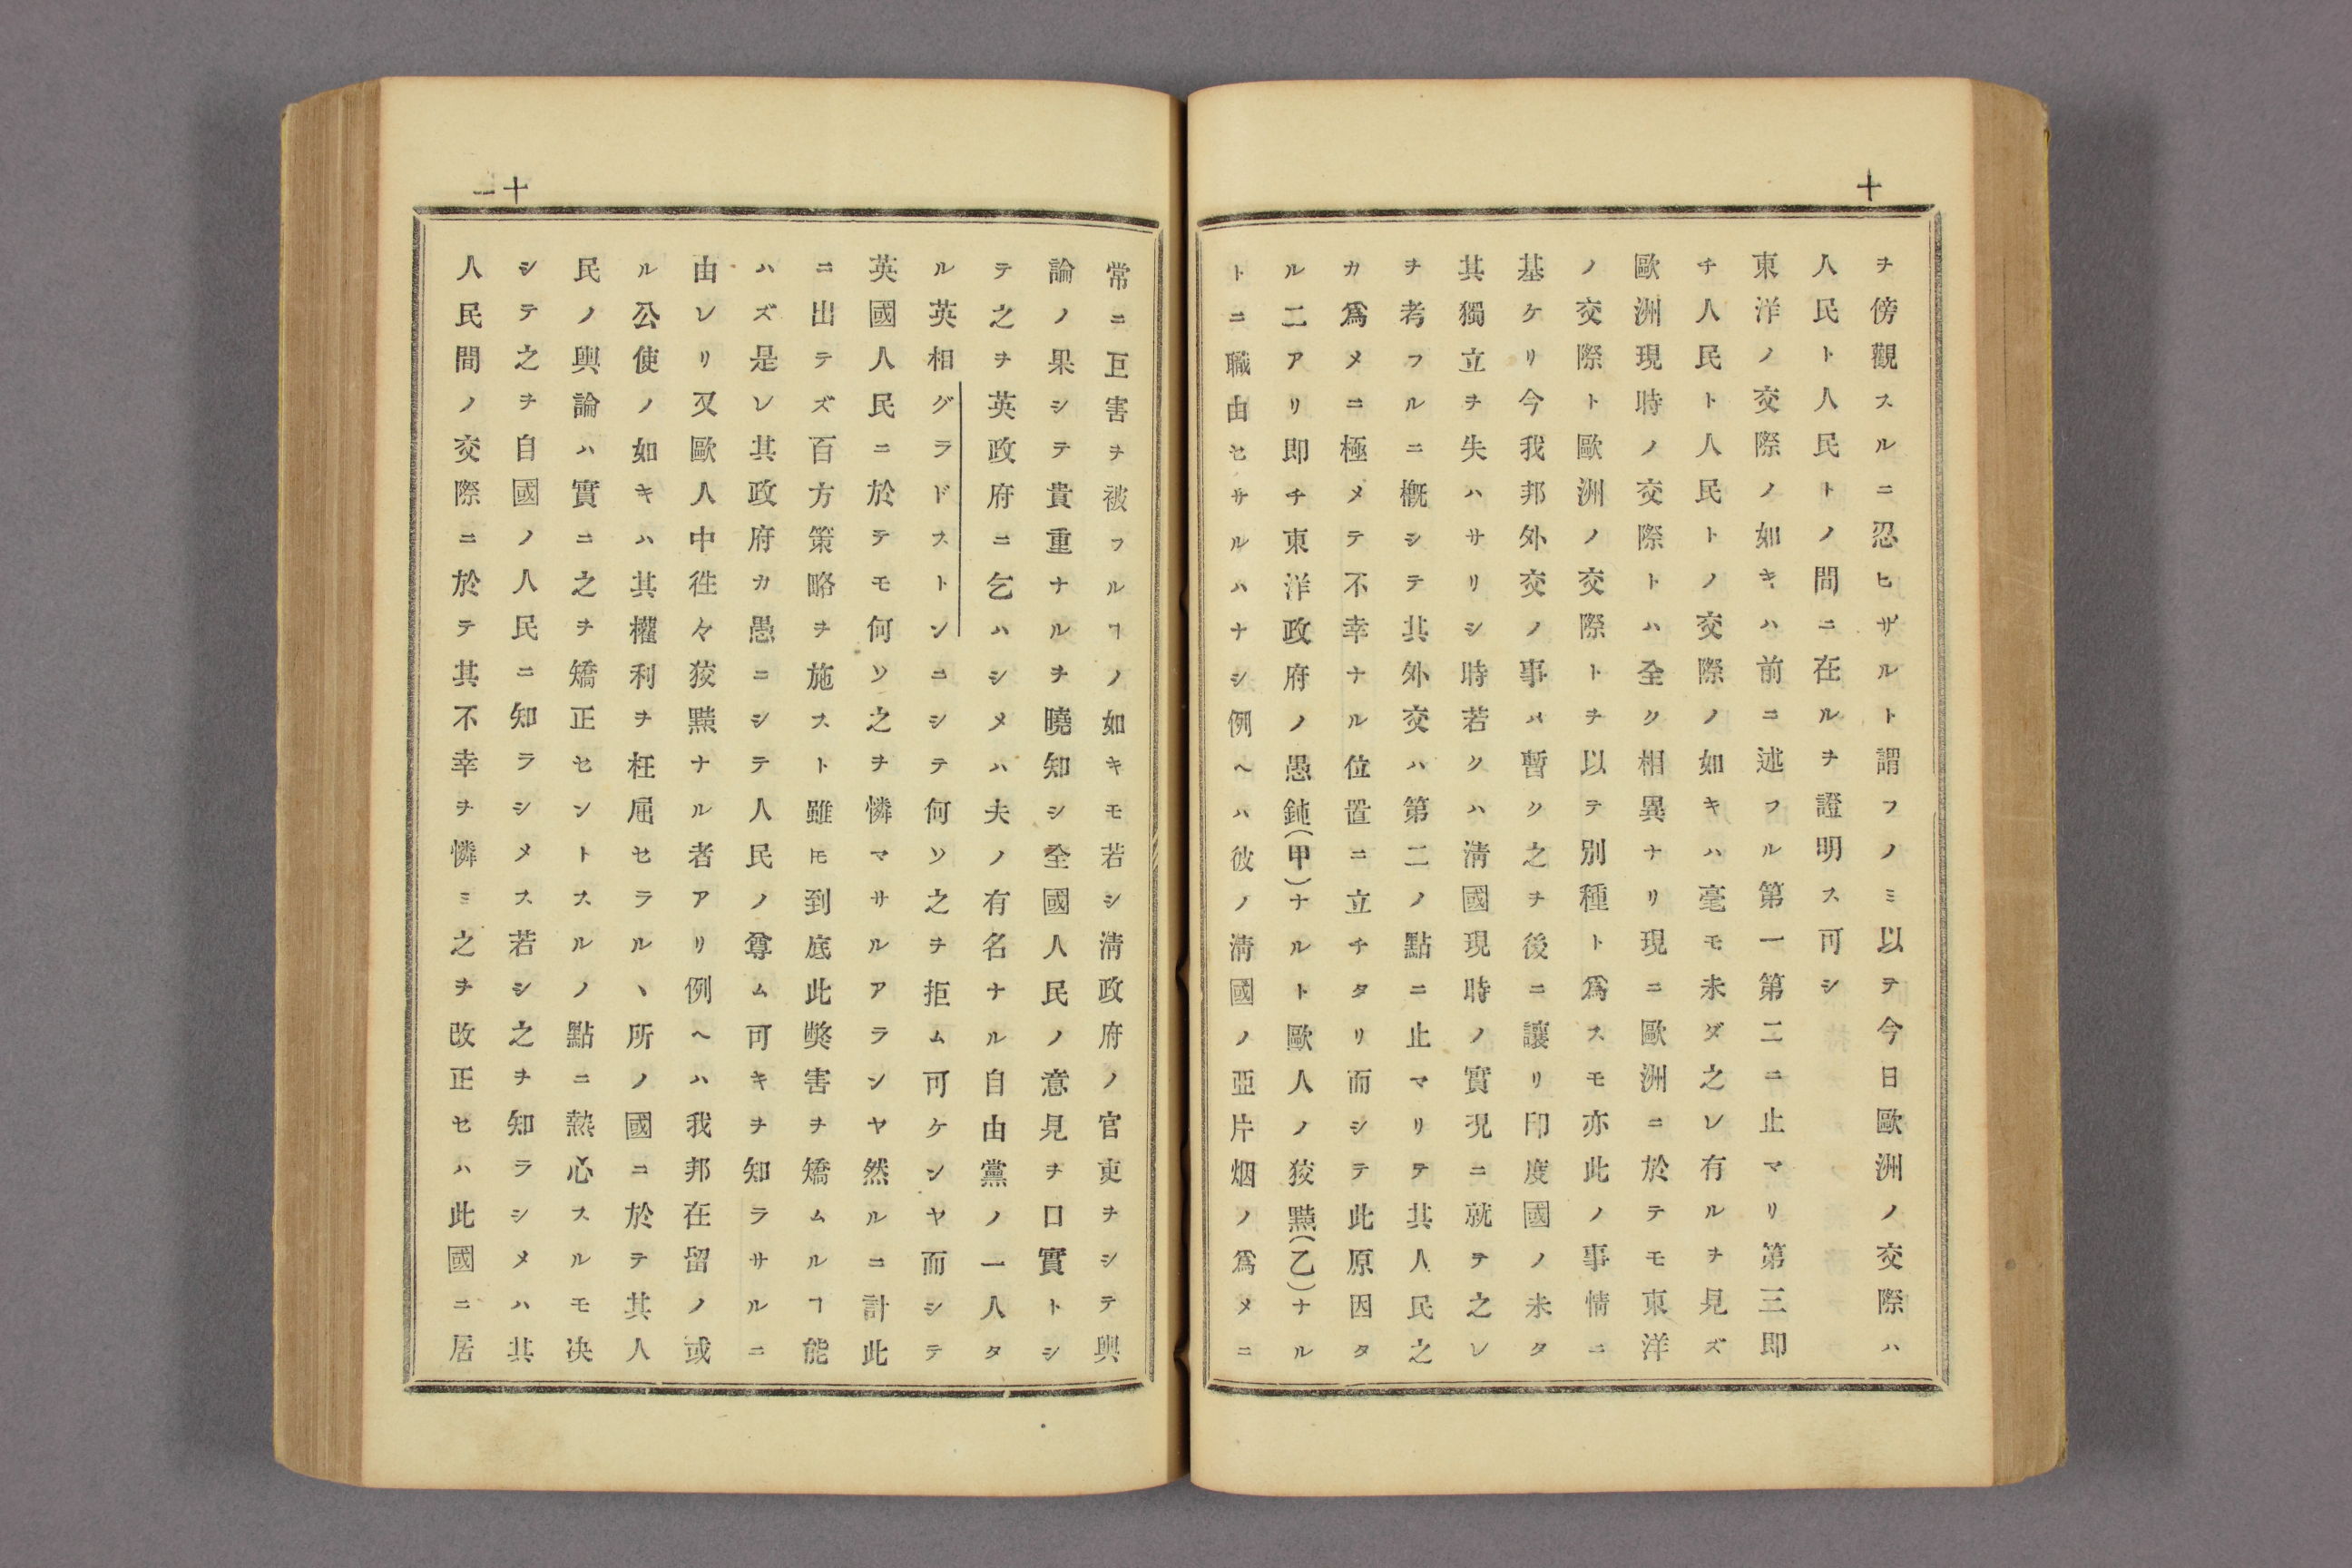 十
ヲ傍觀スルニ忍ヒザルト謂フノミ以テ今日歐洲ノ交際ハ
人民ト人民トノ間ニ在ルヲ證明ス可シ
東洋ノ交際ノ如キハ前ニ述フル第一第二ニ止マリ第三即
チ人民ト人民トノ交際ノ如キハ毫モ未ダ之レ有ルヲ見ズ
歐洲現時ノ交際トハ全ク相異ナリ現ニ歐洲ニ於テモ東洋
ノ交際ト歐洲ノ交際トヲ以テ別種ト爲スモ亦此ノ事情ニ
基ケリ今我邦外交ノ事ハ暫ク之ヲ後ニ讓リ印度國ノ未タ
其獨立ヲ失ハサリシ時若クハ淸國現時ノ實況ニ就テ之レ
ヲ考フルニ槪シテ其外交ハ第二ノ點ニ止マリテ其人民之
カ爲メニ極メテ不幸ナル位置ニ立チタリ而シテ此原因タ
ル二アリ即チ東洋政府ノ愚鈍(甲)ナルト歐人ノ狡黠(乙)ナル
トニ職由セサルハナシ例ヘハ彼ノ淸國ノ亞片烟ノ爲メニ
十一
常ニ巨害ヲ被フルヿノ如キモ若シ淸政府ノ官吏ヲシテ輿
論ノ果シテ貴重ナルヲ曉知シ全國人民ノ意見ヲ口實トシ
テ之ヲ英政府ニ乞ハシメハ夫ノ有名ナル自由黨ノ一人タ
ル英相グラドストンニシテ何ソ之ヲ拒ム可ケンヤ而シテ
英國人民ニ於テモ何ソ之ヲ憐マサルアランヤ然ルニ計此
ニ出テズ百方策略ヲ施スト雖𪜈到底此獘害ヲ矯ムルヿ能
ハズ是レ其政府カ愚ニシテ人民ノ尊ム可キヲ知ラサルニ
由レリ又歐人中徃々狡黠ナル者アリ例ヘハ我邦在留ノ或
ル公使ノ如キハ其權利ヲ枉屈セラルヽ所ノ國ニ於テ其人
民ノ輿論ハ實ニ之ヲ矯正センドスルノ點ニ熱心スルモ决
シテ之ヲ自國ノ人民ニ知ラシメス若シ之ヲ知ラシメハ其
人民間ノ交際ニ於テ其不幸ヲ憐ミ之ヲ改正セハ此國ニ居